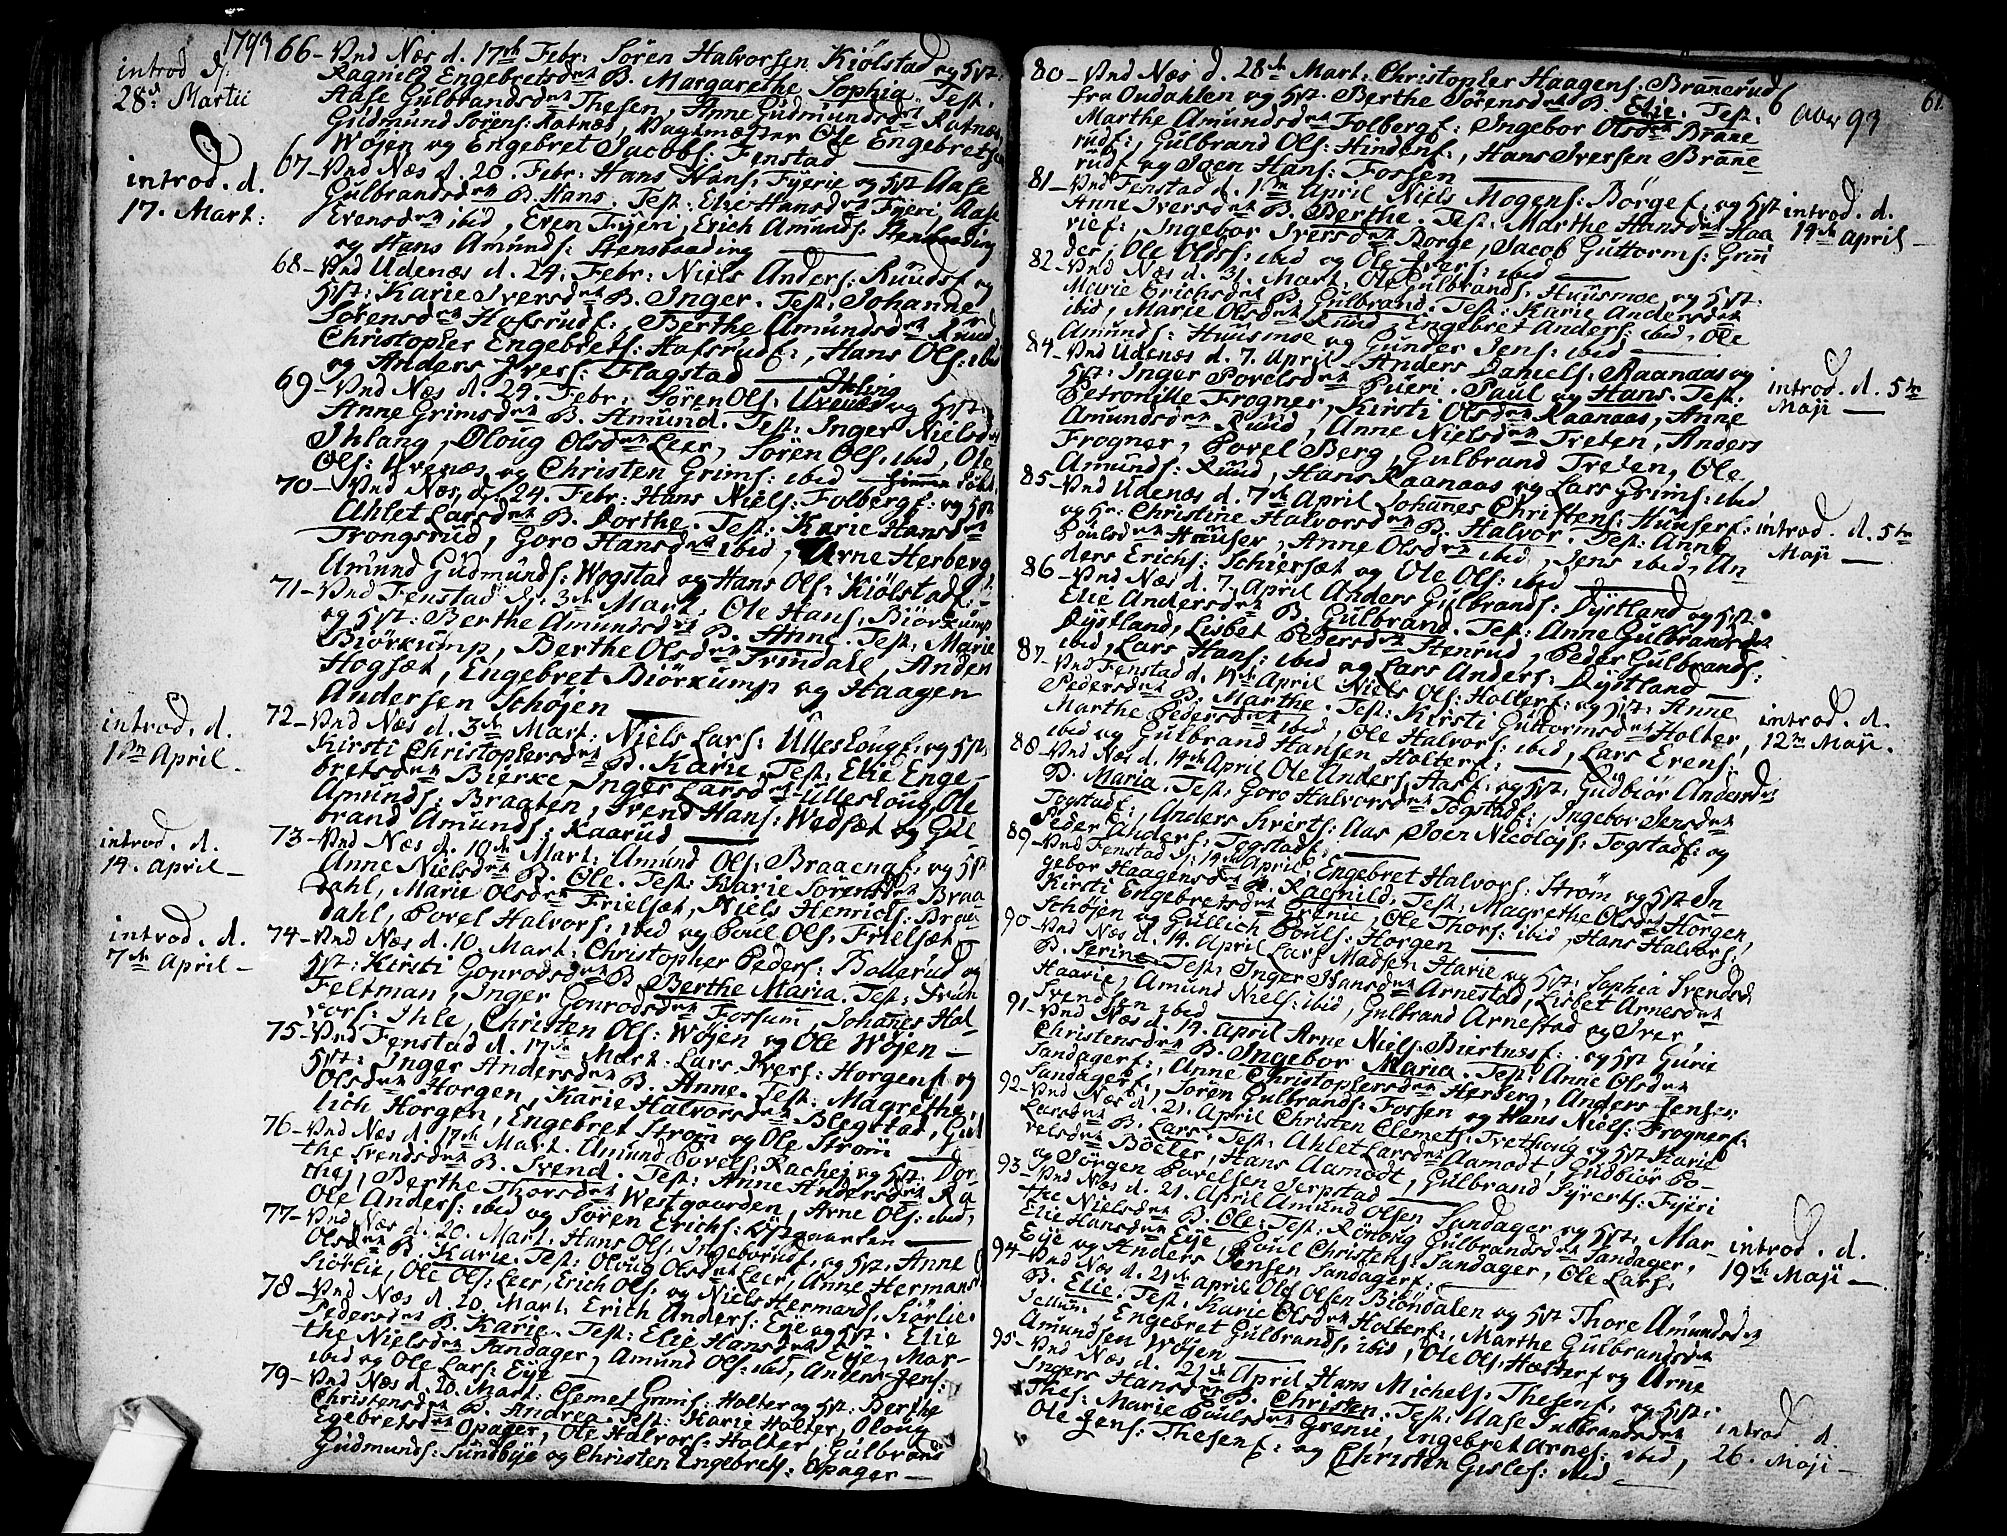 1793
introd d.
28d Martii
66 - Vnd Næs d. 17de Febr: Sören Halvorsen Kiölstad og Hst:
Ragnild Engebretsdr B. Margarethe Sophia. Test.
Aase Gulbrandsdr Thesen, Anne Gudmundsdr Ratnæs
Gudmund Sörens: Ratnæs, Vagtmæster Ole Engebretsen
Wöjen og Engebret Jacobs: Fenstad
introd. d.
17. Mart:
67 - Vnd Næs d. 20. Febr: Hans Hans: Fÿerie og Hst Aase
Gulbrandsdr B. Hans. Test. Elie Hansdr Fÿeri, Aase
Evensdr ibid, Even Fÿeri, Erich Amunds: Stensbraading
og Hans Amunds: Stensbraading
68 - Vnd Udenæs d. 24. Febr: Niels Anders: Ruudsf og
Hst: Karie Iversdr B. Inger. Test. Johanne
Sörensdr Hofsrudf: Berthe Amundsdr Ruud
Christopher Engebrets: Hafsrudf:, Hans Ols: ibid
og Anders Ivers: Flagstad
69 - Vnd Næs d. 24. Febr: Sören Ols: Ihling og Hst:
Anne Grimsdr B. Amund. Test: Inger Nielsdr
Ihlang, Oloug Olsdr Leer, Sören Ols: ibid, Ole
Ols: Uvenæs og Christen Grims: ibid
70 - Vnd Næs d. 24. Febr: Hans Niels: Folbergf: og Hst
Ahlet Larsdr B. Dorthe. Test: Karie Hansdr
Trongsrud, Goro Hansdr ibid, Arne Herberg
Amund Gudmunds: Wogstad og Hans Ols: Kiölstadf:
71 - Vnd Fenstad d. 3de Mart: Ole Hans: Biörkump
og Hst: Berthe Amundsdr B. Anne. Test, Marie
Biörkump, Berthe Olsdr Trindale, Anden
Hogsæt, Engebret Biörkump og Haagen
Andersen Schöjen
introd. d.
1ste April -
72 - Vnd Næs d. 3de Mart: Niels Lars: Ulleslougf: og Hst,
Kirsti Christophersdr B. Karie. Test: Elie Enge-
bretsdr Bierke, Inger Larsdr Ullesloug, Ole
Amunds: Braaten, Svend Hans: Wedsæt og Gul-
brand Amunds: Kaarud
introd. d.
14. April -
73 - Vnd Næs d. 10de Mart: Amund Ols: Braaengf. og Hst
Anne Nielsdr B. Ole. Test: Karie Sörensdr Braa
Dahl, Marie Olsdr Frielsæt, Niels Henrichs: Braa
Dahl, Povel Halvors: ibid og Poul Ols: Frielsæt
introd. d.
7de April -
74 - Vnd Næs d. 10. Mart: Christopher Peders: Bollerud og
Hst: Kirsti Gonrodsdr B. Berthe Maria. Test:
Feltman, Inger Gonrodsdr Fossum, Johanes Hal-
vors: Ihle, Christen Ols: Wöjen og Ole Wöjen -
75 - Vnd Fenstad d. 17de Mart. Lars Ivers: Horgenf og
Hst: Inger Andersdr B. Anne. Test: Magrethe
Olsdr Horgen, Karie Halvorsdr Blegstad, Gul
lich Horgen, Engebret Ström og Ole Ström
76 - Vnd Næs d. 17de Mart. Amund Povels: Rachej og Hst: Dor-
the Svendsdr B. Svend. Test: Anne Andersdr Ra
chej, Berthe Thorsdr Westgaarden, Arne Ols: ibid,
Ole Anders: ibid og Sören Erichs: Östgaarden
77 - Vnd Næs d. 20. Mart: Hans Ols: Ingeborudf. og Hst: Anne
Olsdr B. Karie. Test: Oloug Olsdr Leer, Anne Hermansdr
Siörlie, Ole Ols: Leer, Erich Ols: og Niels Hermands: Siörlie.
78 - Vnd Næs d. 20. Mart. Erich Anders: Eye og Hst. Elie
Pedersdr B. Karie. Test: Elie Hansdr Eye, Mar-
the Nielsdr Sandager, Amund Ols: ibid, Anders Jens:
ibid og Ole Lars: Eye
79 - Vnd Næs d. 20. Mart: Clemet Grims: Holter og Hst: Berthe
Christensdr B. Andrea. Test: Karie Holter, Oloug
Egebretsdr Opager, Ole Halvors: Holter, Gulbrand
Gudmunds: Sundbye og Christen Engebrets: Opager -
61
Aar 93
80 - Vnd Næs d. 28de Mart: Christopher Haagens: Branerud
fra Oudahlen og Hst. Berthe Sörensdr B. Elie. Test.
Marthe Amundsdr Folbergf: Ingebor Olsdr Brane
rudf:, Gulbrand Ols: Hindenf:, Hans Iversen Brane
rudf og Joen Hans: Fossen
81 - Vnd Fenstad d. 1ste April Niels Mogens: Börgef. og Hst
Anne Iversdr B. Berthe. Test: Marthe Hansdr Haa
rief:, Ingebor Iversdr Borge, Jacob Guttorms: Grin
der, Ole Ols: ibid og Ole Ivers: ibid
introd. d.
14de April -
82 - Vnd Næs d. 31. Mart. Ole Gulbrands: Huusmoe og Hst:
Marie Erichsdr B. Gulbrand. Test: Karie Andersdr
ibid, Marie Olsdr Ruud, Engebret Anders: ibid, Ole
Amunds: Huusmoe og Gunder Jens: ibid
84 - Vnd Udenæs d. 7. April Anders Daniels: Raanaas og
Hst: Inger Povelsdr Pueri. Paul og Hans. Test:
Petronille Frogner, Kirsti Olsdr Raanaas, Anne
Amundsdr Ruud, Anne Nielsdr Treten, Anders
Frogner, Povel Berg, Gulbrand Treten, Ole
Amunds: Ruud, Hans Raanaas og Lars Grims: ibid
introd. d. 5te
Maji -
85 - Vnd Udenæs d. 7de April Johanes Christens: Huuserf:
og Hr: Christine Halvorsdr B. Halvor. Test: Anne
Poulsdr Huuser, Anne Olsdr ibid, Jens ibid, An
ders Erichs: Schiersæt og Ole Ols: ibid
introd. d. 5te
Maji -
86 - Vnd Næs d. 7. April Anders Gulbrands: Dÿstland og Hst
Elie Andersdr B. Gulbrand. Test: Anne Gulbrandsdr
Dÿstland, Lisbet Pedersdr Stenrud, Peder Gulbrands:
ibid, Lars Hans: ibid og Lars Anders: Dÿstland
87 - Vnd Fenstad d. 14de April Niels Ols: Holterf: og Hst: Anne
Pedersdr B. Marthe. Test: Kirsti Guttormsdr Holter,
Marthe Pedersdr ibid, Ole Halvors: ibid, Lars Evens:
ibid og Gulbrand Hansen Holterf:
introd. d.
12te Maji.
88 - Vnd Næs d. 14de April Ole Anders: Aasf: og Hst. Gudbiör Andersdr
B. Maria. Test: Goro Halvorsdr Togstadf:, Ingebor Jensdr
Togstadf:, Anders Siverts: Aas, Joen Nicolajs: Togstadf: og
Peder Anders: Togstadf:
89 - Vnd Fenstad d. 14de April Engebret Halvors: Ström og Hst In
gebor Haagensdr B. Ragnild. Test: Magrethe Olsdr Horgen,
Kirsti Engebretsdr Grenie, Ole Thors: ibid, Hans Halvors:
Schöjen og Gullich Pouls: Horgen
90 - Vnd Næs d. 14. April Lars Madsen Harie og Hst: Sophia Svendsdr
B. Serine. Test: Inger Hansdr Arnestad, Lisbet Arnesdr
Haarie, Amund Niels: ibid, Gulbrand Arnestad og Iver
Svendsen ibid
91 - Vnd Næs d. 14. April Arne Niels: Biertnesf: og Hst Gurie
Christensdr B. Ingebor Maria. Test: Anne Olsdr
Sandagerf:, Anne Christophersdr Herberg, Anders Jensen
Sandagerf:, Sören Gulbrands: Fossen og Hans Niels: Frognerf:
92 - Vnd Næs d. 21. April Christen Clemets: Tvethaug og Hst Karie
Larsdr B. Lars. Test: Ahlet Larsdr Aamodt, Gudbiör Po-
velsdr Böeler, Hans Aamodt, Gulbrand Syverts: Fÿeri
og Jörgen Povelsen Jerpstad
93 - Vnd Næs d. 21. April Amund Olsen Sandager og Hst, Mar-
the Nielsdr B. Ole. Test: Rönnog Gulbrandsdr Sandager,
Elie Hansdr Eye, Poul Christens: Sandager, Ole Lars:
Eye og Anders Jensen Sandagerf:
introd. d.
19de Maji -
94 - Vnd Næs d. 21de April Ole Olsen Blöndalen og Hst Thore Amundsdr
B. Elie. Test: Karie Olsdr Holterf:, Marthe Gulbrandsdr
Jellum, Engebret Gulbrands: ibid, Ole Ols: Holterf og Arne
Amundsen Wöjen
95 - Vnd Næs d. 21de April Hans Michels: Thesenf: og Hst:
Inger Hansdr B. Christen. Test: Aase Gulbrandsdr
Thes: Marie Poulsdr Grenie, Engebret Arnes: ibid,
Ole Jens: Thesenf: og Christen Gisles: ibid
introd d.
26. Maji -